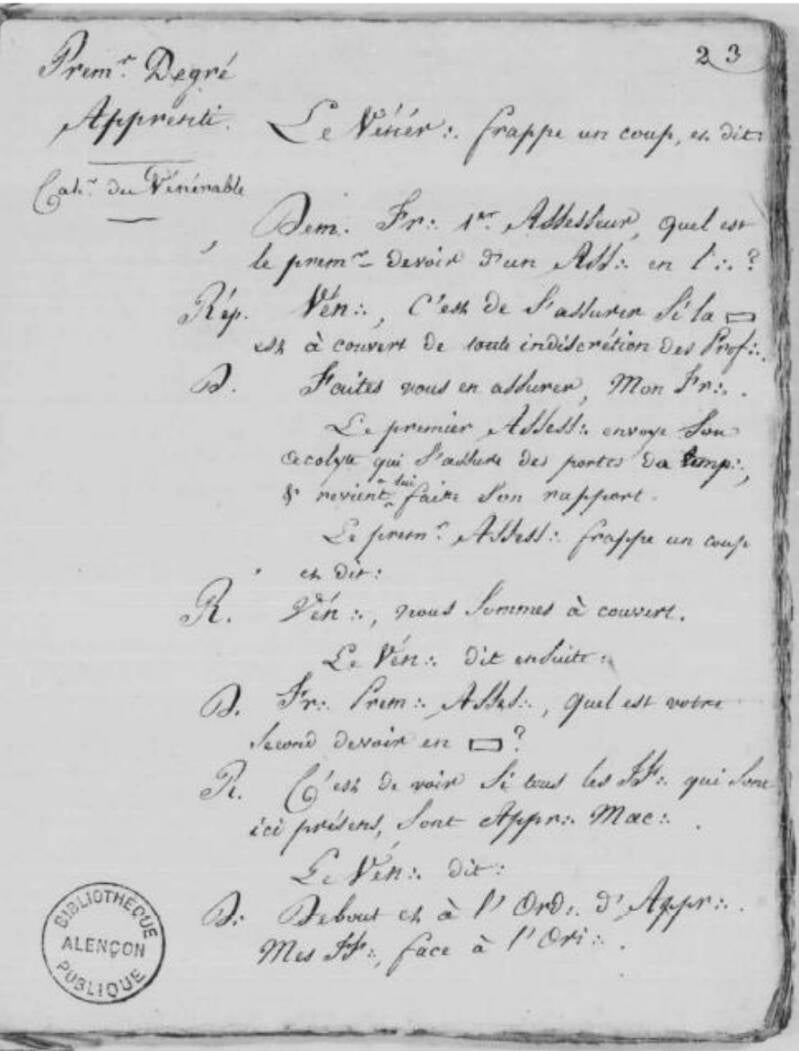 23
Prem.r Degré
Apprenti.
Cah.r du Vénérable
Le Vénér∴ frappe un coup, et dit:
Dem. Fr∴ 1er Assesseur, quel est
le prem.r devoir d'un Ass∴ en l∴ ?
Rép. Vén∴, C'est de s'assurer si la ▭
est à couvert de toute indiscrétion des Prof∴.
D. Faites vous en assurer, Mon Fr∴.
Le premier Assess∴ envoye son
acolyte qui s'assure des portes du temp∴,
& revient lui faire son rapport.
Le prem.r Assess∴ frappe un coup
et dit:
R. Vén∴, nous sommes à couvert.
Le Vén∴ dit ensuite:
D. Fr∴ Prem∴ Asses∴, quel est votre
second devoir en ▭ ?
R. C'est de voir si tous les FF∴ qui sont
ici présens, sont Appr∴ Mac∴.
Le Vén∴ dit:
D: Debout et à l'Ord∴ d'Appr∴.
Mes FF∴, face à l'Ori∴.
BIBLIOTHEQUE
ALENÇON
PUBLIQUE